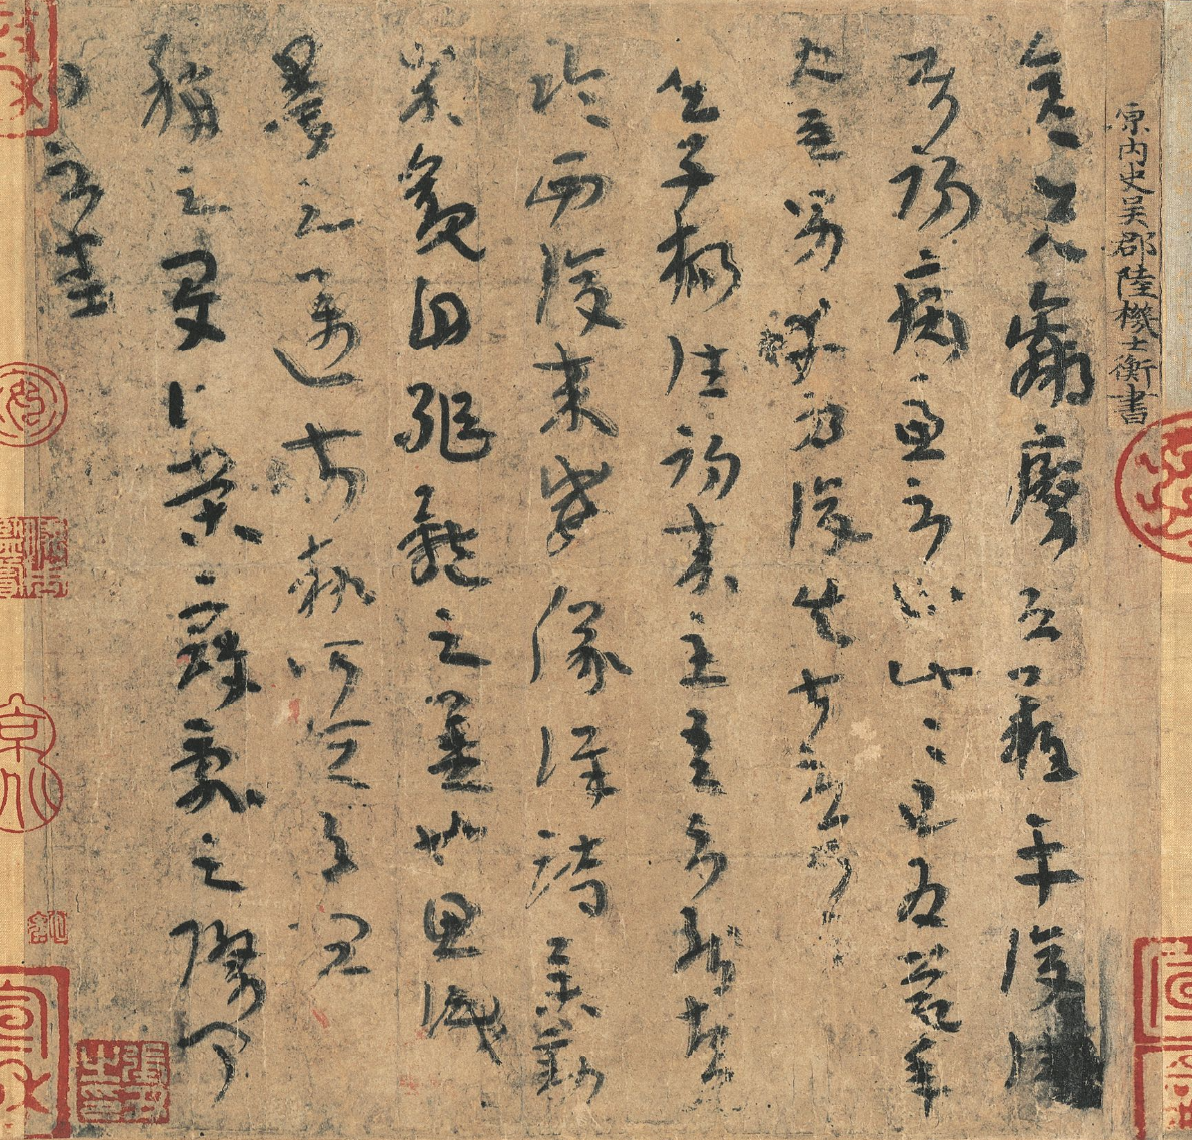 晉內史吳郡陸機士衡書
彥先羸瘵恐難平復往屬
初病慮不止此此已為慶承
使唯男幸為復失前憂耳
吳子楊往初來主吾不能盡
臨西復來威儀詳跱舉動成
觀自軀體之美也思識
量之邁前執所恒有宜
稱之夏伯榮寇亂之際聞
問不悉